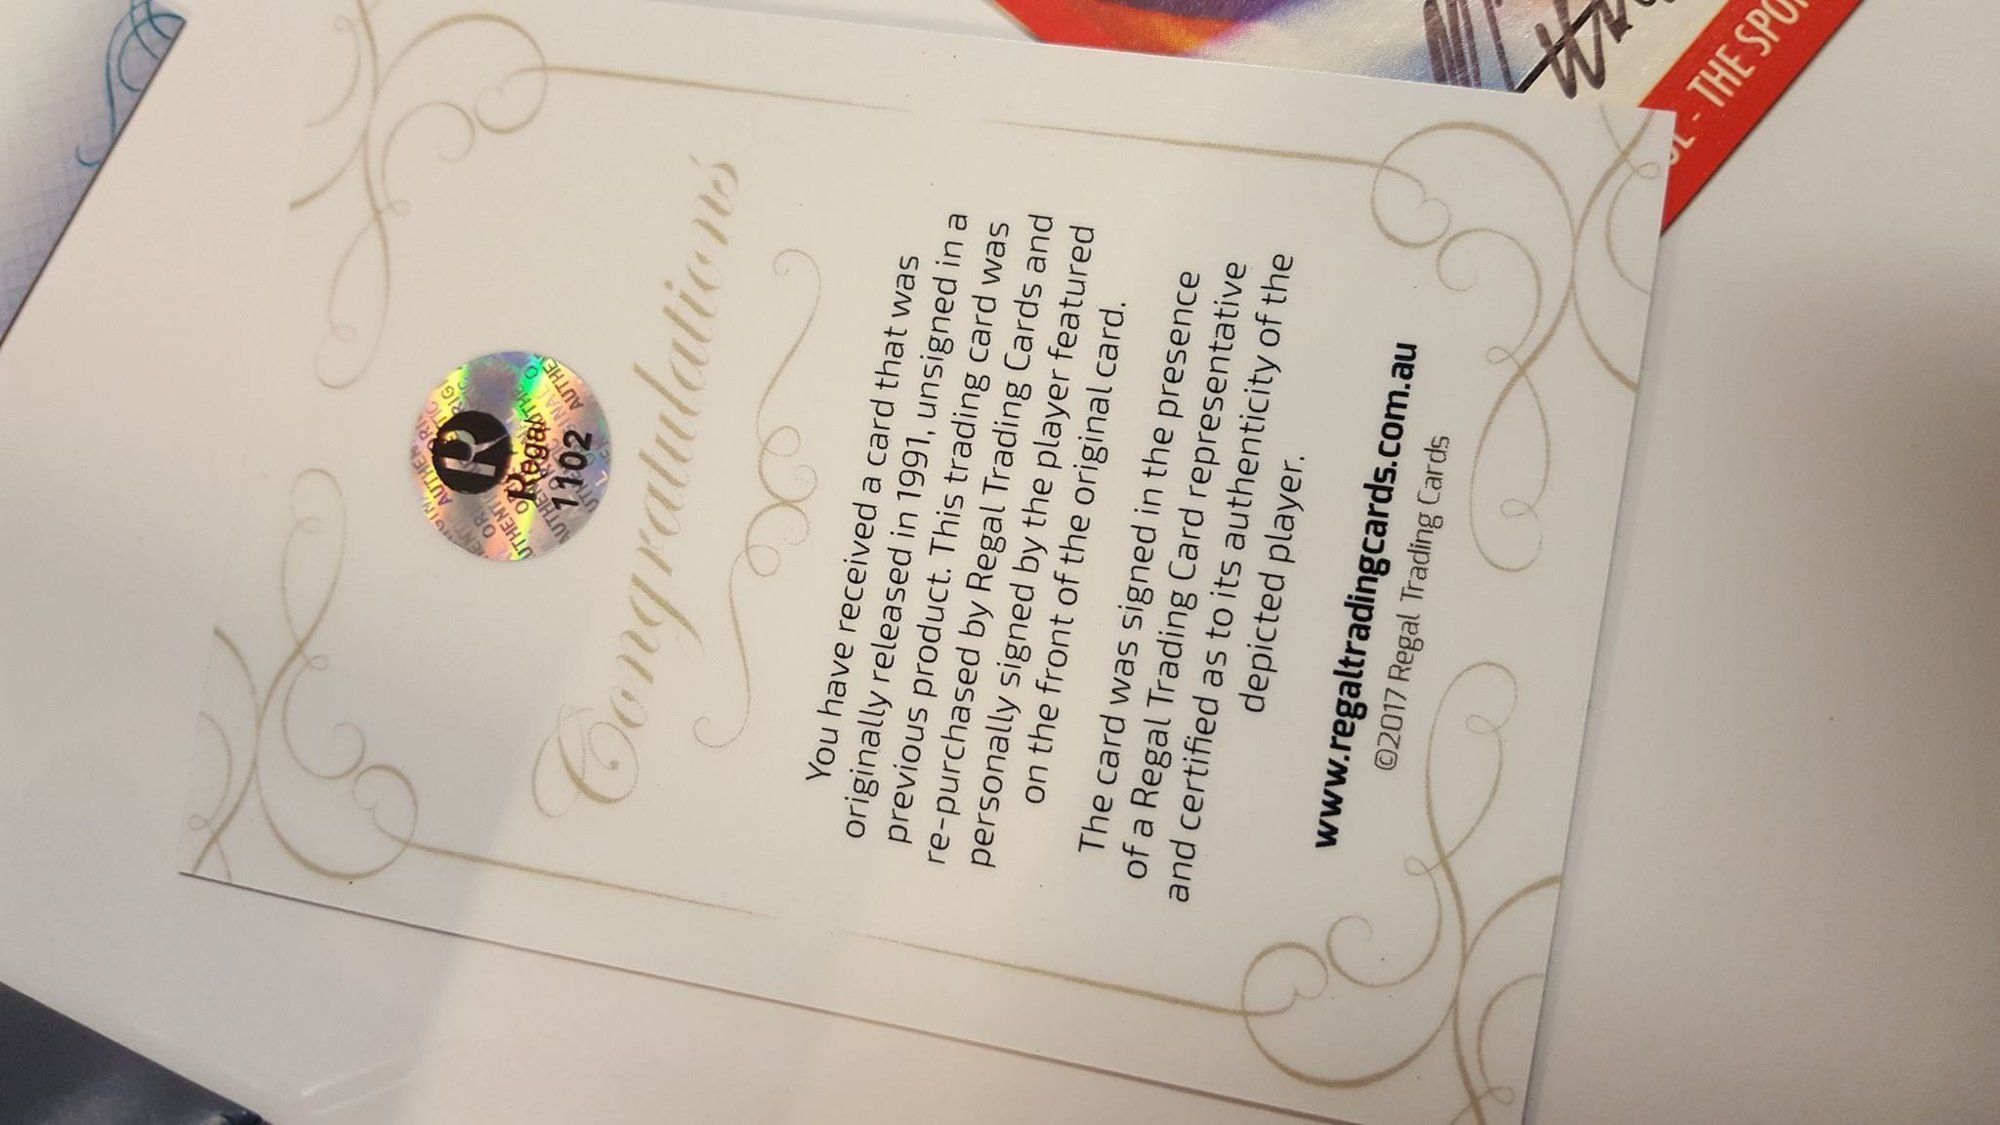 R
Regal
1102
Congratulations
You have received a card that was
originally released in 1991, unsigned in a
previous product. This trading card was
re-purchased by Regal Trading Cards and
personally signed by the player featured
on the front of the original card.
The card was signed in the presence
of a Regal Trading Card representative
and certified as to its authenticity of the
depicted player.
www.regaltradingcards.com.au
©2017 Regal Trading Cards
- THE SPO